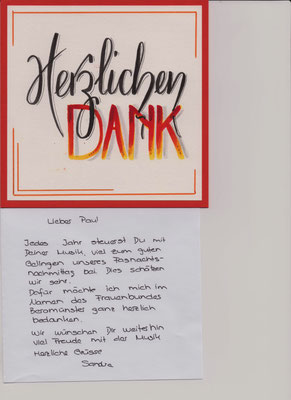 Herzlichen
DANK
Lieber Paul
Jedes Jahr steuerst Du mit
Deiner Musik, viel zum guten
Gelingen unseres Fasnachts-
nachmittag bei. Dies schätzen
wir sehr.
Dafür möchte ich mich im
Namen des Frauenbundes
Beromünster ganz herzlich
bedanken.
Wir wünschen Dir weiterhin
viel Freude mit der Musik
Herzliche Grüsse
Sandra